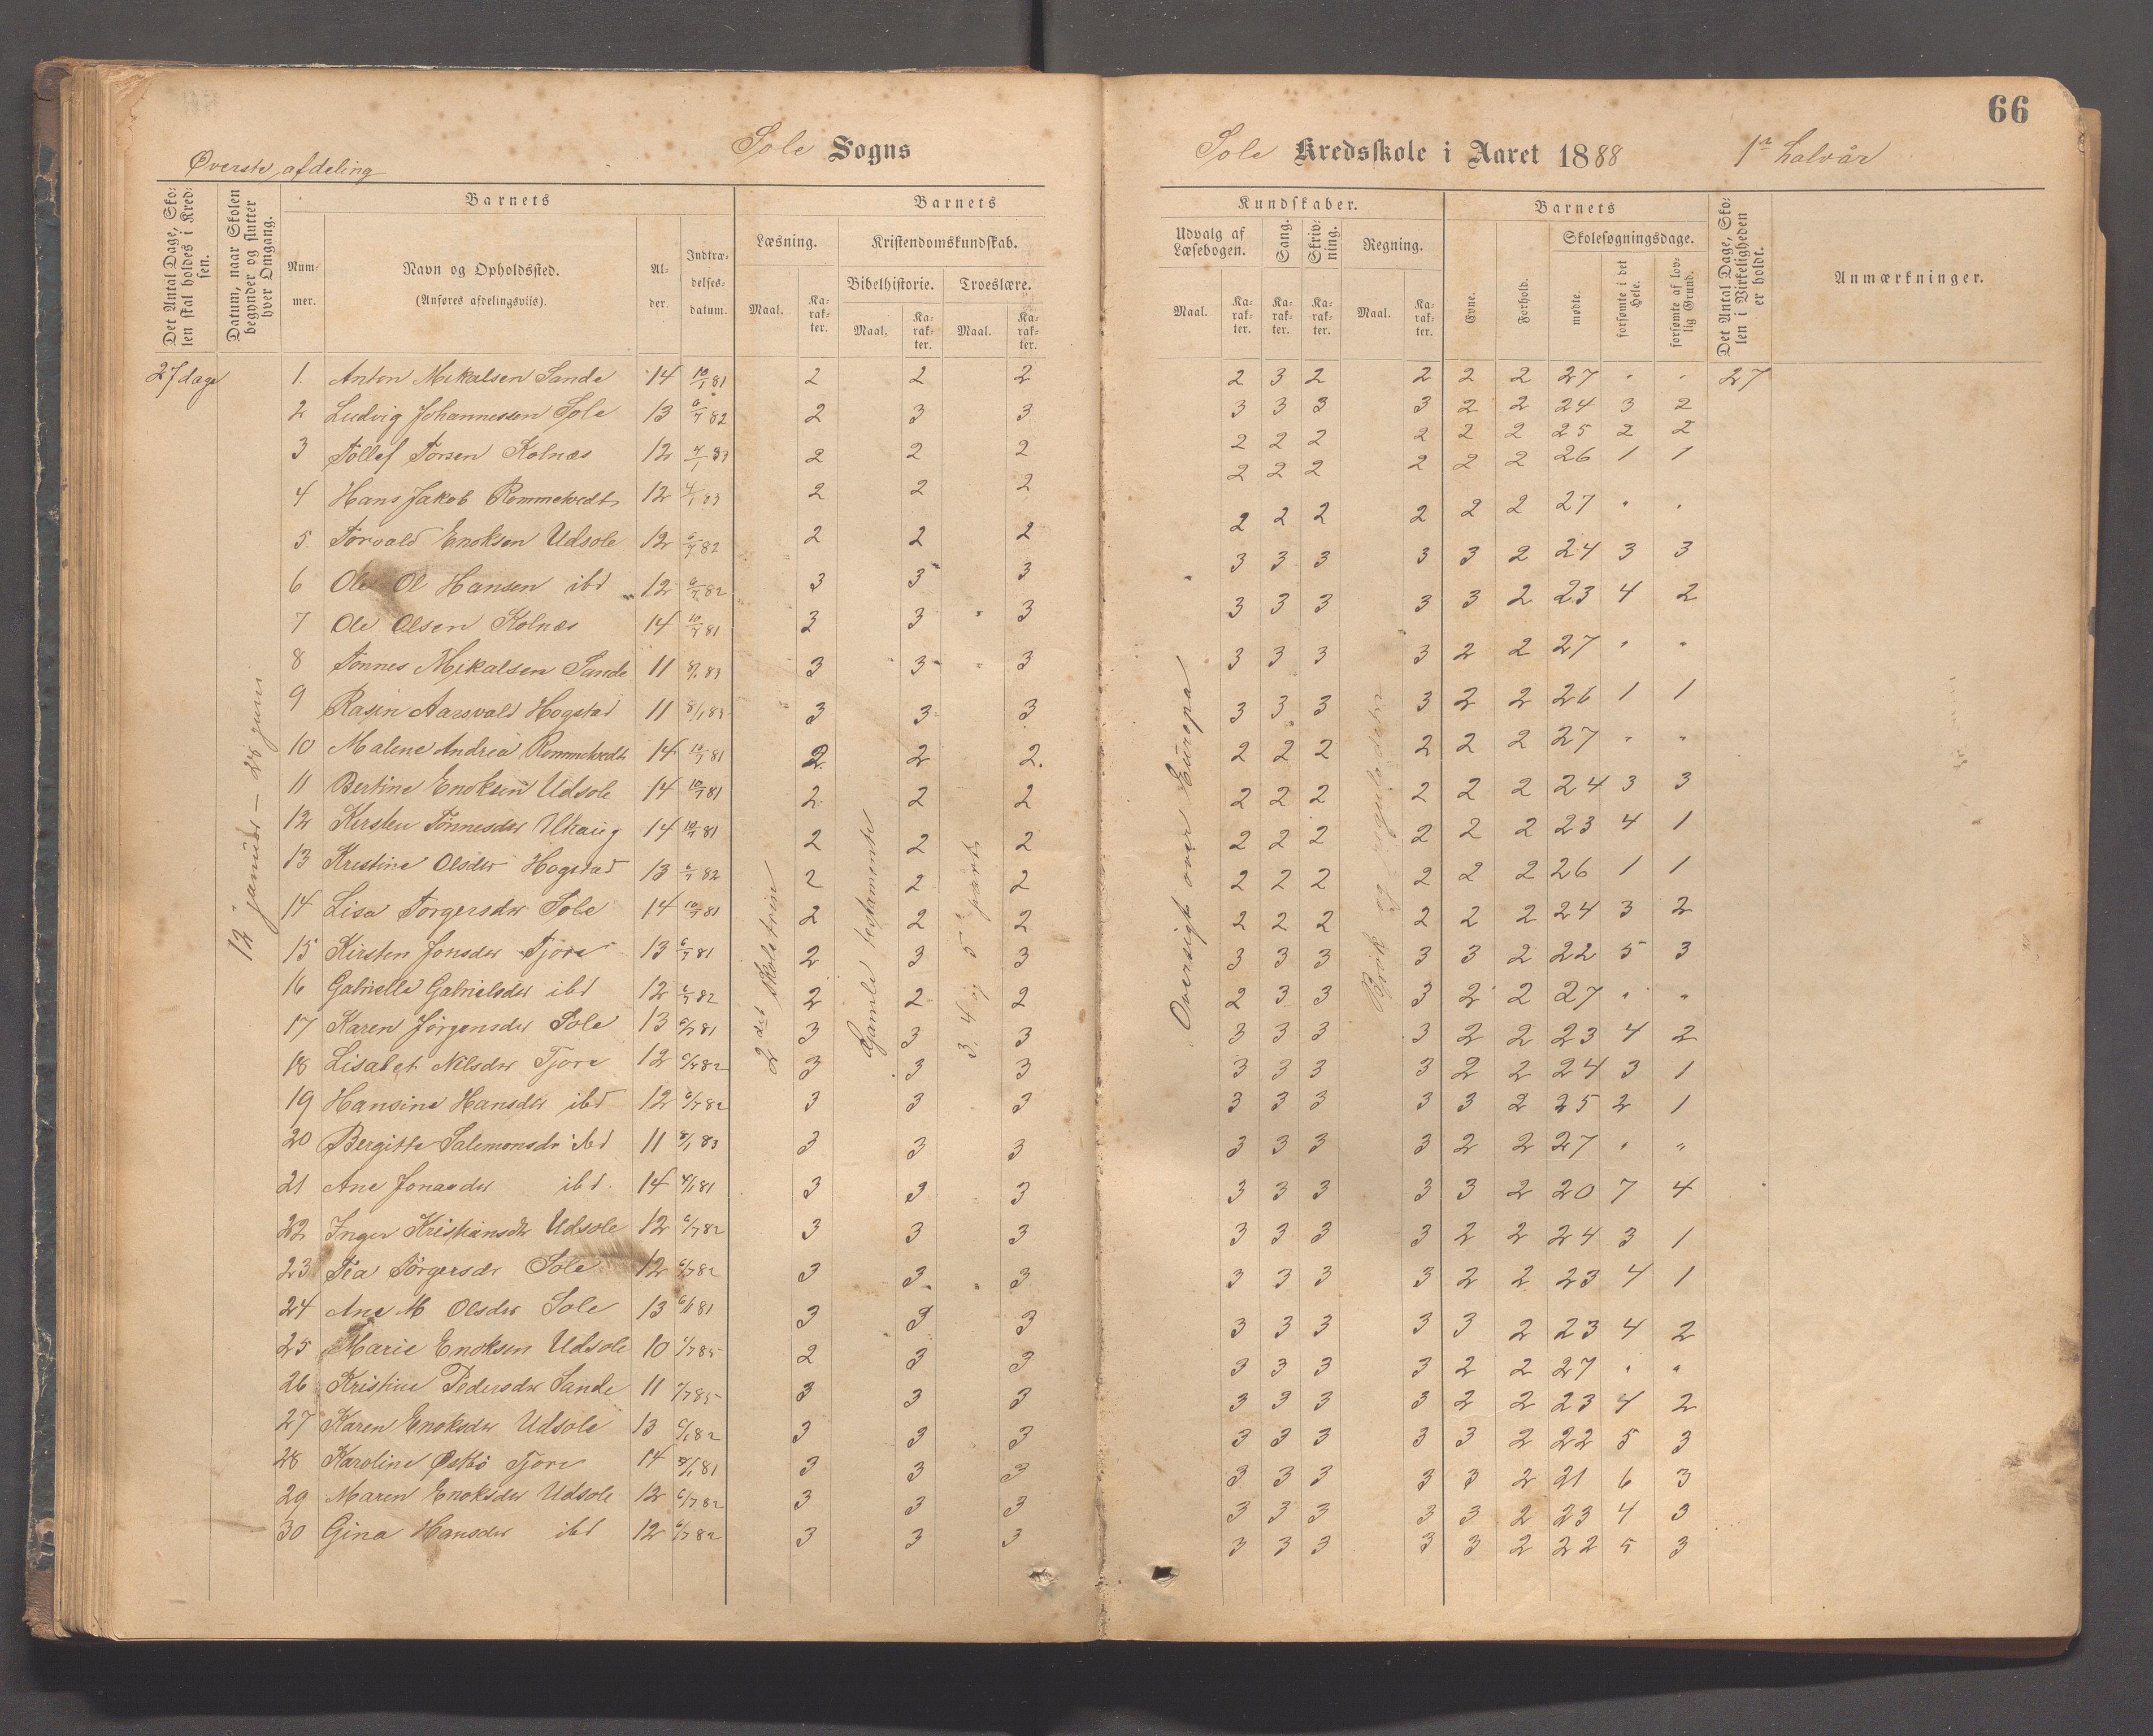 66
Sole Sogns
Sole Kredsskole i Aaret 1888 1ste halvår
Øverste afdeling
Det Antal Dage, Skolen skal holdes i Kredsen.
Datum, naar Skolen begynder og slutter hver Omgang.
Barnets
Nummer.
Navn og Opholdssted.
(Anføres afdelingsviis).
Alder.
Indtrædelsesdatum.
Barnets
Læsning.
Kristendomskundskab.
Bibelhistorie.
Troeslære.
Maal.
Karakter.
Maal.
Karakter.
Maal.
Karakter.
Kundskaber.
Udvalg af Læsebogen.
Sang.
Skrivning.
Regning.
Maal.
Karakter.
Karakter.
Karakter.
Maal.
Karakter.
Barnets
Evne.
Forhold.
Skolesøgningsdage.
mødte.
forsømte i det Hele.
forsømte af lovlig Grund.
Det Antal Dage, Skolen i Virkeligheden er holdt.
Anmærkninger.
27 dage
12 januar – 28 juni
2det skoletrin
Gamle testamente
3, 4 og 5te part
Oversigt over Europa
Brøk og reguladetri
1. Anton Mikalsen Sande 14 10/1 81 2 2 2 2 3 2 2 2 2 27 " " 27
2 Ludvig Johannessen Sole 13 6/7 82 2 3 3 3 3 3 3 2 2 24 3 2
3 Tollef Torsen Kolnæs 12 4/1 83 2 2 2 2 2 2 2 2 2 25 2 2
4 Hans Jakob Rommetvedt 12 4/1 83 2 2 2 2 2 2 2 2 2 26 1 1
5. Torvald Enoksen Udsole 12 6/7 82 2 2 2 2 2 2 2 2 2 27 " "
6 Ole Ol Hansen ibd 12 6/7 82 3 3 3 3 3 3 3 3 2 24 3 3
7 Ole Olsen Kolnæs 14 10/1 81 3 3 3 3 3 3 3 3 2 23 4 2
8 Tønnes Mikalsen Sande 11 8/1 83 3 3 3 3 3 3 3 2 2 27 " "
9 Rasin Aarsvald Hogstad 11 8/1 83 3 3 3 3 3 3 3 2 2 26 1 1
10 Malene Andrea Rommetvedt 14 10/1 81 2 2 2 2 2 2 2 2 2 27 " "
11 Bertine Enoksen Udsole 14 10/1 81 2 2 2 2 2 2 2 2 2 24 3 3
12 Kirsten Tønnesdtr 14 10/1 81 2 2 2 2 2 2 2 2 2 23 4 1
13 Kristine Olsdtr Hogstad 13 6/7 82 2 2 2 2 2 2 2 2 2 26 1 1
14 Lisa Torgersdtr Sole 14 10/1 81 2 2 2 2 2 2 2 2 2 24 3 2
15 Kirsten Jonsdtr Tjora 13 6/7 81 2 3 3 3 3 3 3 3 2 22 5 3
16 Gabrielle Gabrielsdtr ibd 12 6/7 82 2 2 2 2 3 3 3 2 2 27 " "
17 Karen Jørgensdtr Sole 13 6/7 81 3 3 3 3 3 3 3 2 2 23 4 2
18 Lisabet Nilsdtr Tjora 12 6/7 82 3 3 3 3 3 3 3 2 2 24 3 1
19 Hansine Hansdtr ibd 12 6/7 82 3 3 3 3 3 3 3 3 2 25 2 1
20 Bergitte Salemonsdtr ibd 11 8/1 83 3 3 3 3 3 3 3 2 2 27 " "
21 Ane Jonasdtr ibd. 14 81 3 3 3 3 3 3 3 3 2 20 7 4
22 Inger Kristiansdtr Udsole 12 6/7 82 3 3 3 3 3 3 3 2 2 24 3 1
23 Tea Torgersdtr Sole 12 6/7 82 3 3 3 3 3 3 3 2 2 23 4 1
24 Ane M Olsdtr Sole 13 6/1 81 3 3 3 3 3 3 3 3 2 23 4 2
25 Marie Enoksen Udsole 10 1/7 85 2 3 3 3 3 3 3 2 2 27 " "
26 Kristine Pedersdtr Sande 11 1/7 85 3 3 3 3 3 3 3 2 2 23 4 2
27 Karen Enoksdtr Udsole 13 82 3 3 3 3 3 3 3 3 2 22 5 3
28 Karoline Østbø Tjora 14 81 3 3 3 3 3 3 3 3 2 21 6 3
29 Maren Enoksdtr Udsole 12 6/7 82 3 3 3 3 3 3 3 3 2 23 4 3
30 Gina Hansdtr ibd 12 6/7 82 3 3 3 3 3 3 3 3 2 22 5 3